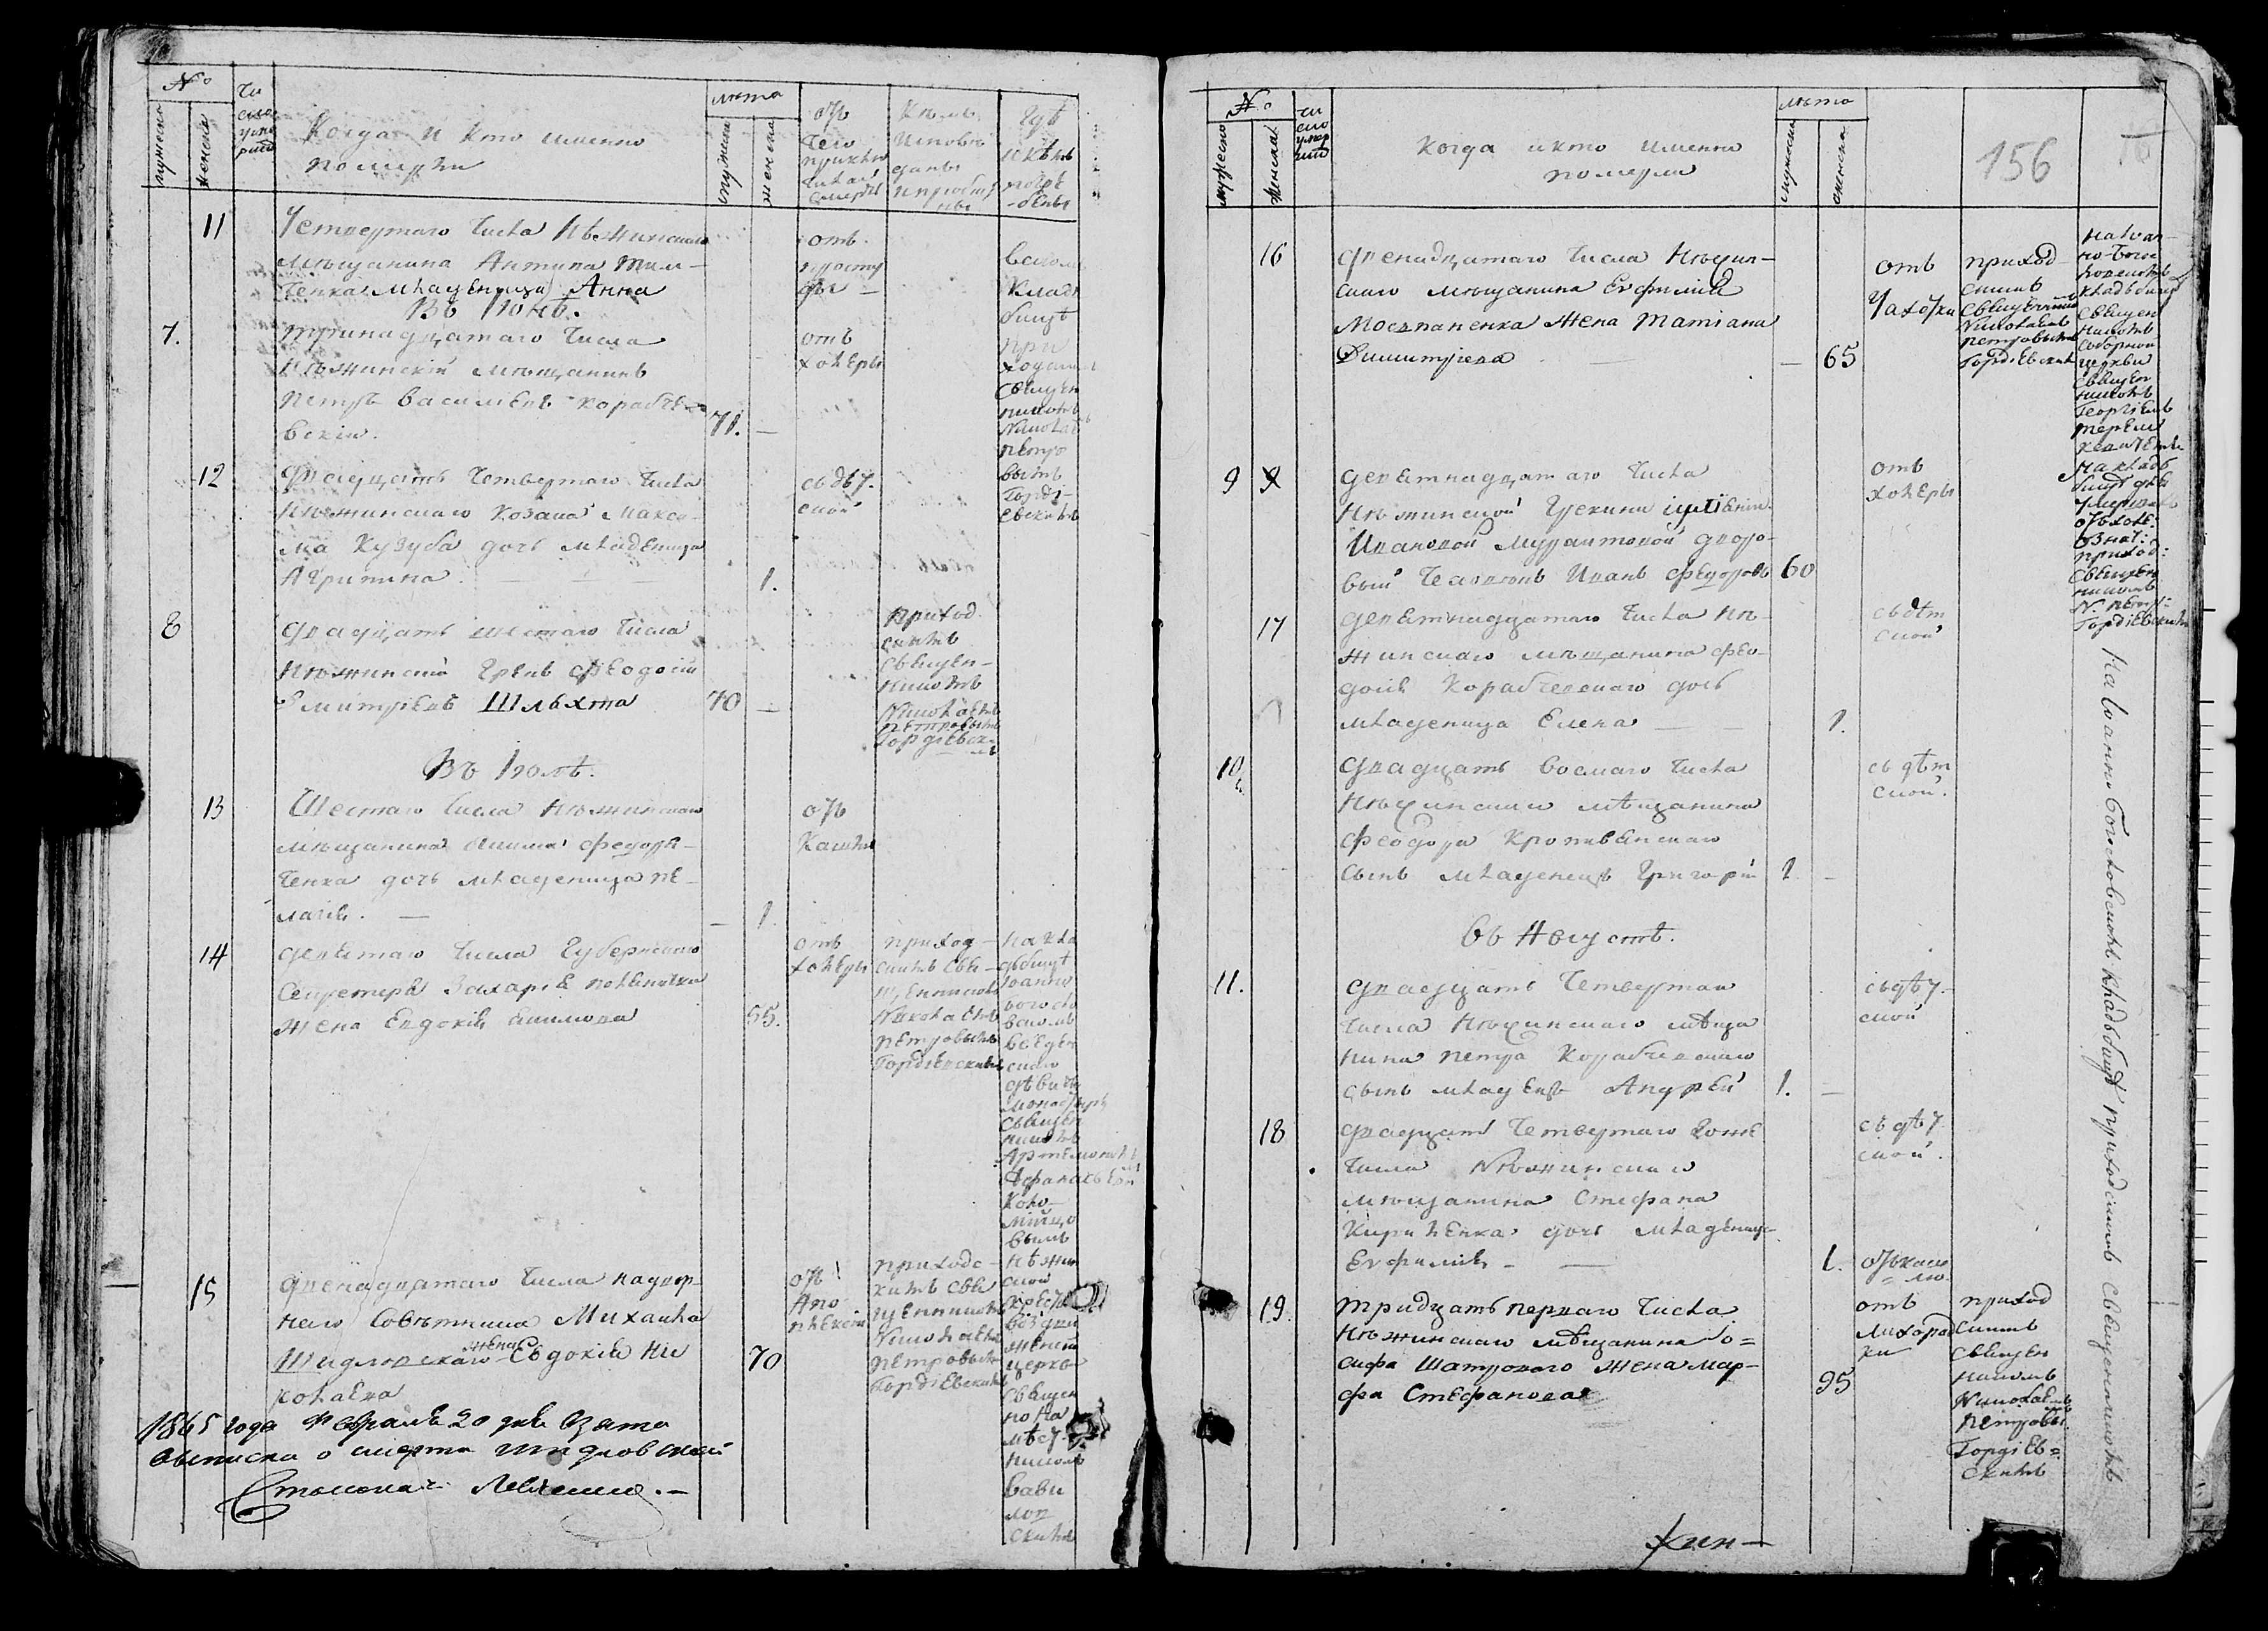 №
мужеска
женска
Чи
сло
уме
ршихъ
Когда и кто именно
померли
лѣта
мужеска
женска
отъ
чего
приклю
чилась
смерть
Кѣмъ
исповѣ
даны
и приобще
ны
гдѣ
и кѣмъ
погре
-бены
11
Четвертаго числа Нѣжинскаго
мѣщанина Антипа
ченка младеница Анна
отъ
просту
ды —
Въ Іюнѣ.
7.
Тринадцатаго числа
Нѣжинскій мѣщанинъ
Петръ Васильевъ Корабче-
вскій.
71. —
отъ
холеры
при
ходским
священ
никомъ
Николае
Петро
вымъ
Горді-
евскимъ
12
Двадцать четвертаго числа
Нѣжинскаго козака Макси-
ма Кузуба дочь младеница
Агрипина.
1.
съ дѣт.
ской
8
Двадцать шестаго числа
Нѣжинскій Грекъ Феодосій
Дмитріевъ Шляхта
70 —
приход.
скимъ
священ-
никомъ
Николаемъ
Петровымъ
Гордіевски
мъ
Въ Іюлѣ.
13
Шестаго числа Нѣжинскаго
мѣщанина Якима Федоря-
ченка дочь младеница Пе-
лагія. —
— 1.
отъ
кашля
14
Девятаго числа Губернскаго
Секретаря Захарія
жена Евдокія Якимова
55.
отъ
холеры
приход-
скимъ свя-
щенникомъ
Николаемъ
Петровымъ
Гордіевскимъ
на кла
дбищѣ
Іоанно
бого сло
вскомъ
Введен
скаго
дѣвичь
монастыря
священ
никомъ
Артемономъ
Афанасьевим
Коло-
мійцо
вымъ
15
Двенадцатаго числа надвор-
наго Совѣтника Михаила
Шидловскаго жена Евдокія Ни
колаева
70
отъ
Апо
плексіи
приходс-
кимъ свя
щенникомъ
Николаемъ
Петровымъ
Гордіевскимъ
Нѣжин
ской
Кресто
воздви
женской
церкви
Священ
но на
мѣст
никомъ
Вави
лов
скимъ
1865 года Февраля 20 дня взята
выписка о смерти Шидловской
№
мужеско
женска
чи
сло
умер
шихъ
Когда и кто именно
померли
лѣта
мужеска
женска
156
16
Двенадцатаго числа Нѣжин-
скаго мѣщанина Евфимія
Моспаненка жена Татіана
Димитріева — — 65
отъ
чахотки
приход-
скимъ
священникомъ
Николаемъ
Петровымъ
Гордіевскимъ
на Іоан-
но-Бого
словскомъ
кладбищѣ
священ
никомъ
соборной
церкви
священ
никомъ
Георгіемъ
9
Девятнадцатаго числа
Нѣжинской Грекини
Ивановой двора-
вый человѣкъ Иванъ Федоровъ
60
отъ
холеры
17
Девятнадцатаго числа Нѣ-
жинскаго мѣщанина Фео-
досія Корабчевскаго дочь
младеница Елена — —
1.
съ дѣт
ской
10
Двадцать восмаго числа
Нѣжинскаго мѣщанина
Феодора Кропивянскаго
сынъ младенецъ Григорій
1 —
съ дѣт
ской.
Въ Августѣ.
11.
Двадцать четвертаго
числа Нѣжинскаго мѣща
нина Петра Корабчевскаго
сынъ младенецъ Андрей
1. —
съ дѣт-
ской
18
Двадцать четвертаго тоже
числа Нѣжинскаго
мѣщанина Стефана
Кириленка дочь младениц
Евфимія —
1.
съ дѣт
ской.
19.
Тридцать перваго числа
Нѣжинскаго мѣщанина Іо=
сифа Шатроваго жена Мар-
фа Стефанова
95
отъ
лихорад
ки
приход
скимъ
священ
никомъ
Николаемъ
Петровы.
Гордіев=
скимъ
На Іоанно Богословскомъ кладбищѣ приходскимъ священникомъ